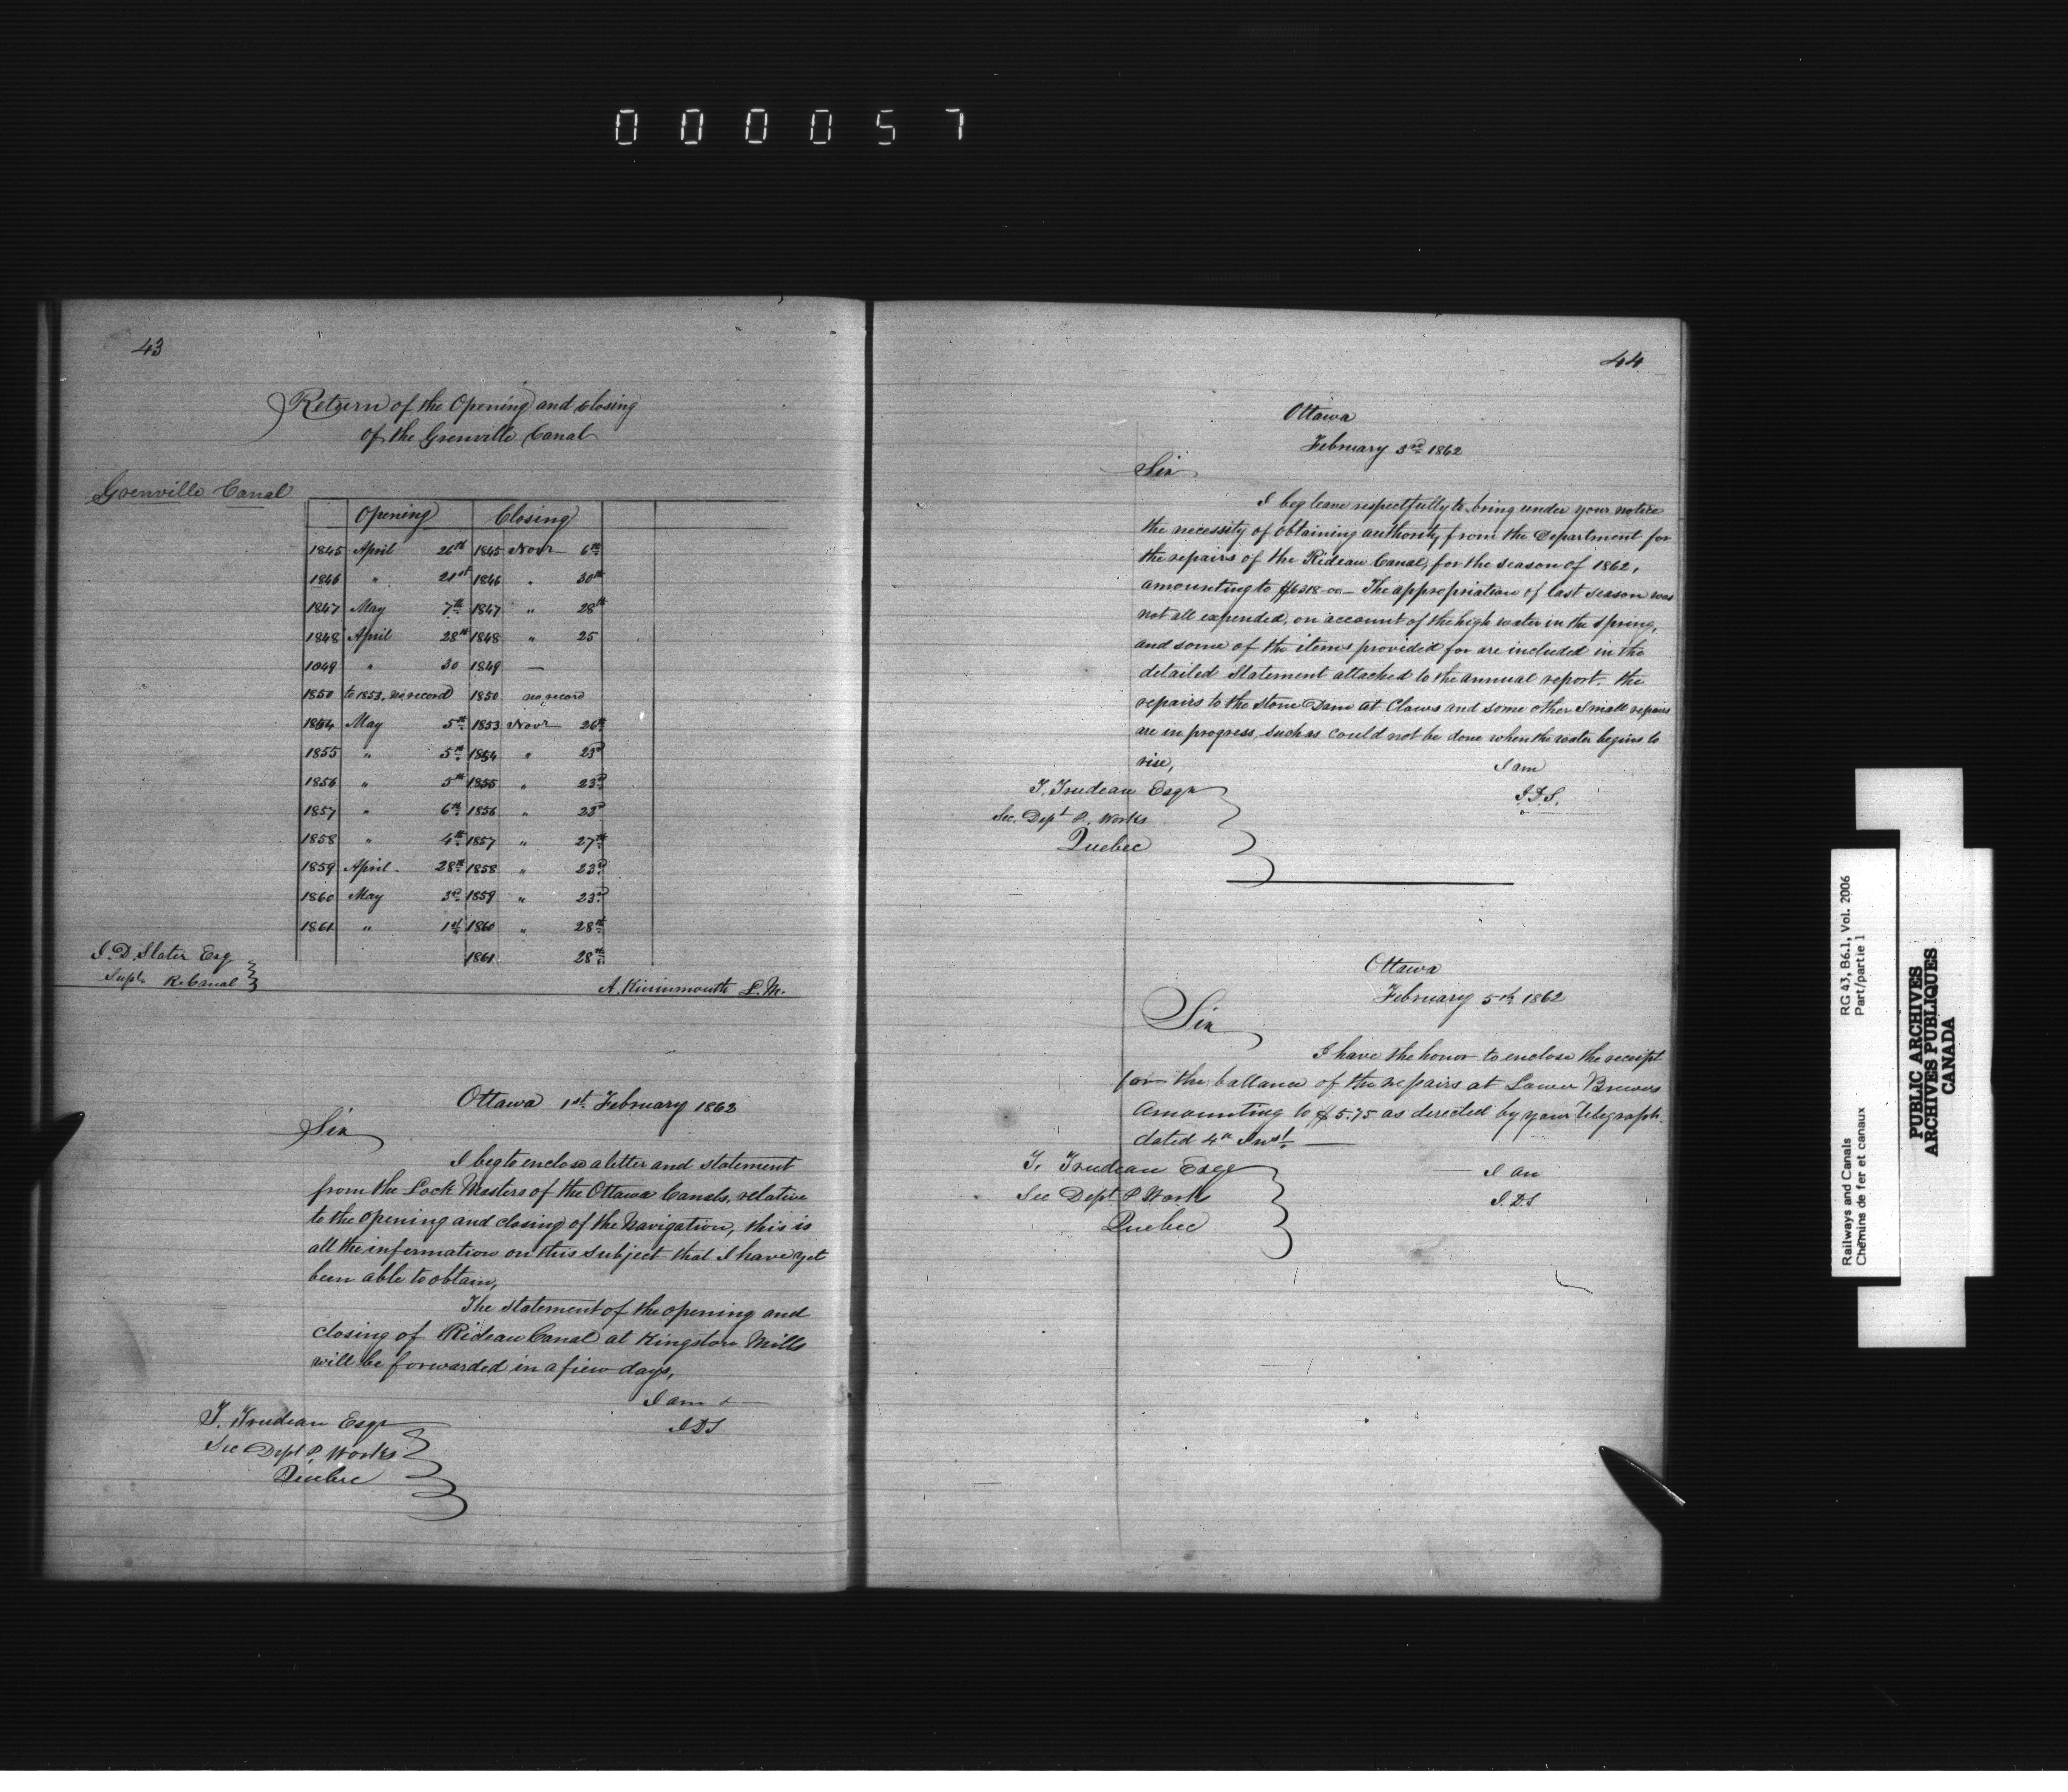 000057
43
Return of the Opening and closing
of the Grenville Canal
Grenville Canal
Opening Closing
1845 April 26th 1845 Novr 6th
1846 " 21st 1846 " 30th
1847 May 7th 1847 " 28th
1848 April 28th 1848 " 25
1849 " 30 1849 —
1850 to 1853, no record 1850 no record
1854 May 5th 1853 Novr 26th
1855 " 5th 1854 " 23d
1856 " 5th 1855 " 23d
1857 " 6th 1856 " 23d
1858 " 4th 1857 " 27th
1859 April 28th 1858 " 23d
1860 May 3d 1859 " 23d
1861 " 1st 1860 " 28th
1861 28th
J. D. Slater Esq
Supt. R. Canal
A. Kininmouth L. M.
Ottawa 1st February 1862
Sir
I beg to enclose a letter and statement
from the Lock Masters of the Ottawa Canals, relative
to the opening and closing of the Navigation, this is
all the information on this subject that I have yet
been able to obtain,
The statement of the opening and
closing of Rideau Canal at Kingston Mills
will be forwarded in a fiew days,
I am
J D S
T. Trudeau Esqr
Sec Dept P. Works
Quebec
44
Ottawa
February 3rd 1862
Sir
I beg leave respectfully to bring under your notice
the necessity of obtaining authority from the Department for
the repairs of the Rideau Canal, for the season of 1862,
amounting to $6318-00 — The appropriation of last season was
not all expended, on account of the high water in the spring,
and some of the items provided for are included in the
detailed Statement attached to the annual report. the
repairs to the stone Dam at Claws and some other Small repairs
are in progress, such as could not be done when the water begins to
rise,
I am
J. D. S.
T. Trudeau Esqr
Sec. Dept P. Works
Quebec
Ottawa
February 5th 1862
Sir
I have the honor to enclose the receipt
for the ballance of the repairs at Lower Brewers
Amounting to $5.75 as directed by your Telegraph.
dated 4th Inst —
I am
J. D. S
T. Trudeau Esqr
Sec Dept P Works
Quebec
Railways and Canals
Chemins de fer et canaux
RG 43, B6.1, Vol. 2006
Part/partie 1
PUBLIC ARCHIVES
ARCHIVES PUBLIQUES
CANADA